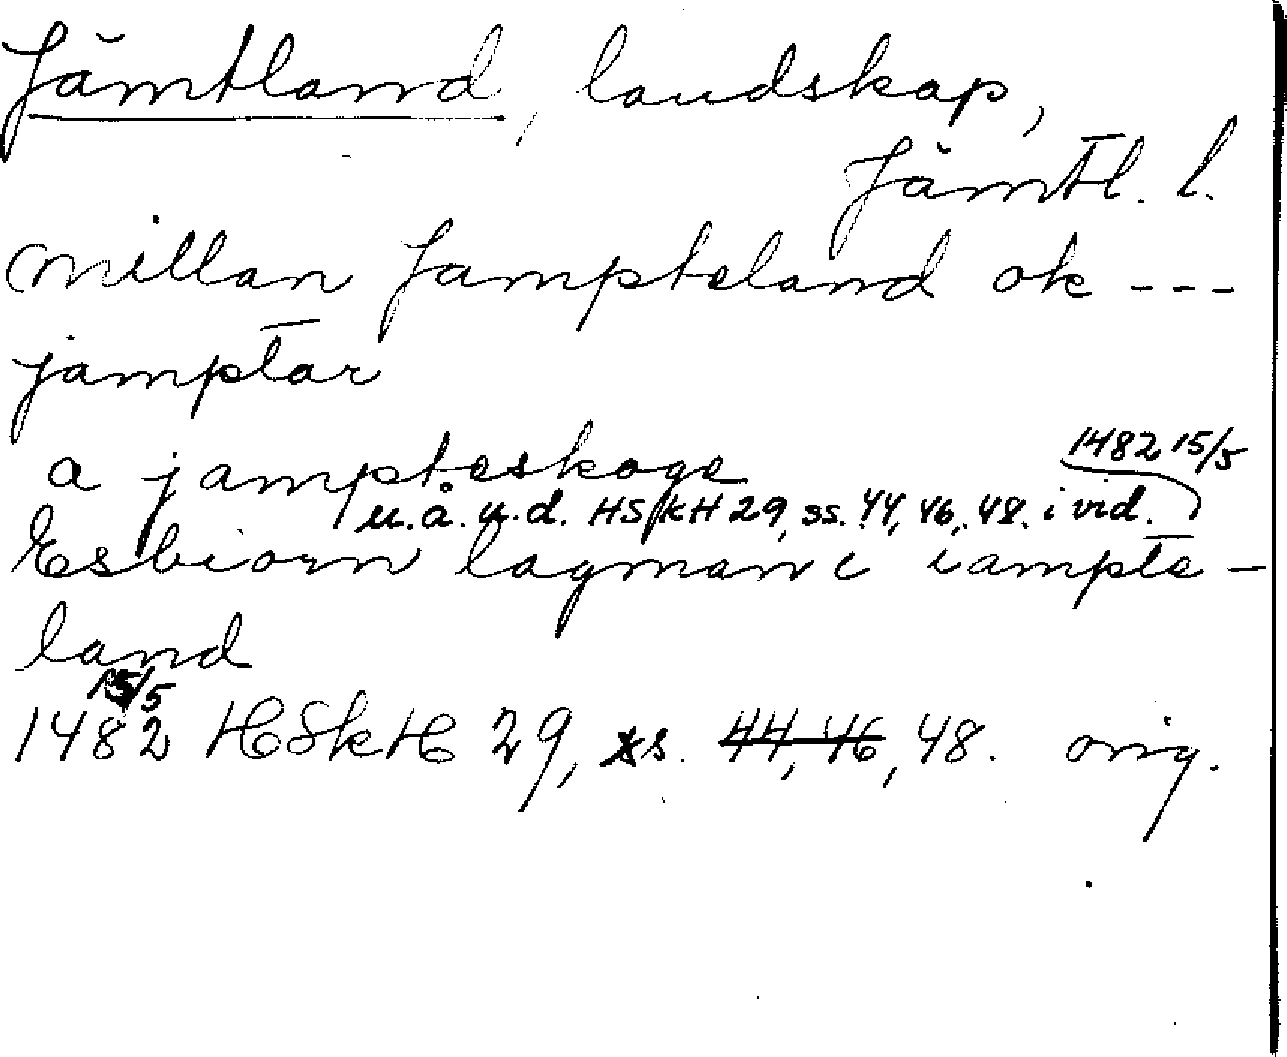 Jämtland, landskap,
Jämtl. l.
millan Jampteland ok ---
jamptar
a jampteskoge
1482 15/5
u.å.u.d. HSkH 29, ss. 44, 46, 48. i vid.
Esbiorn lagman i iampte-
land
15/5
1482 HSkH 29, s. 44, 46, 48. orig.